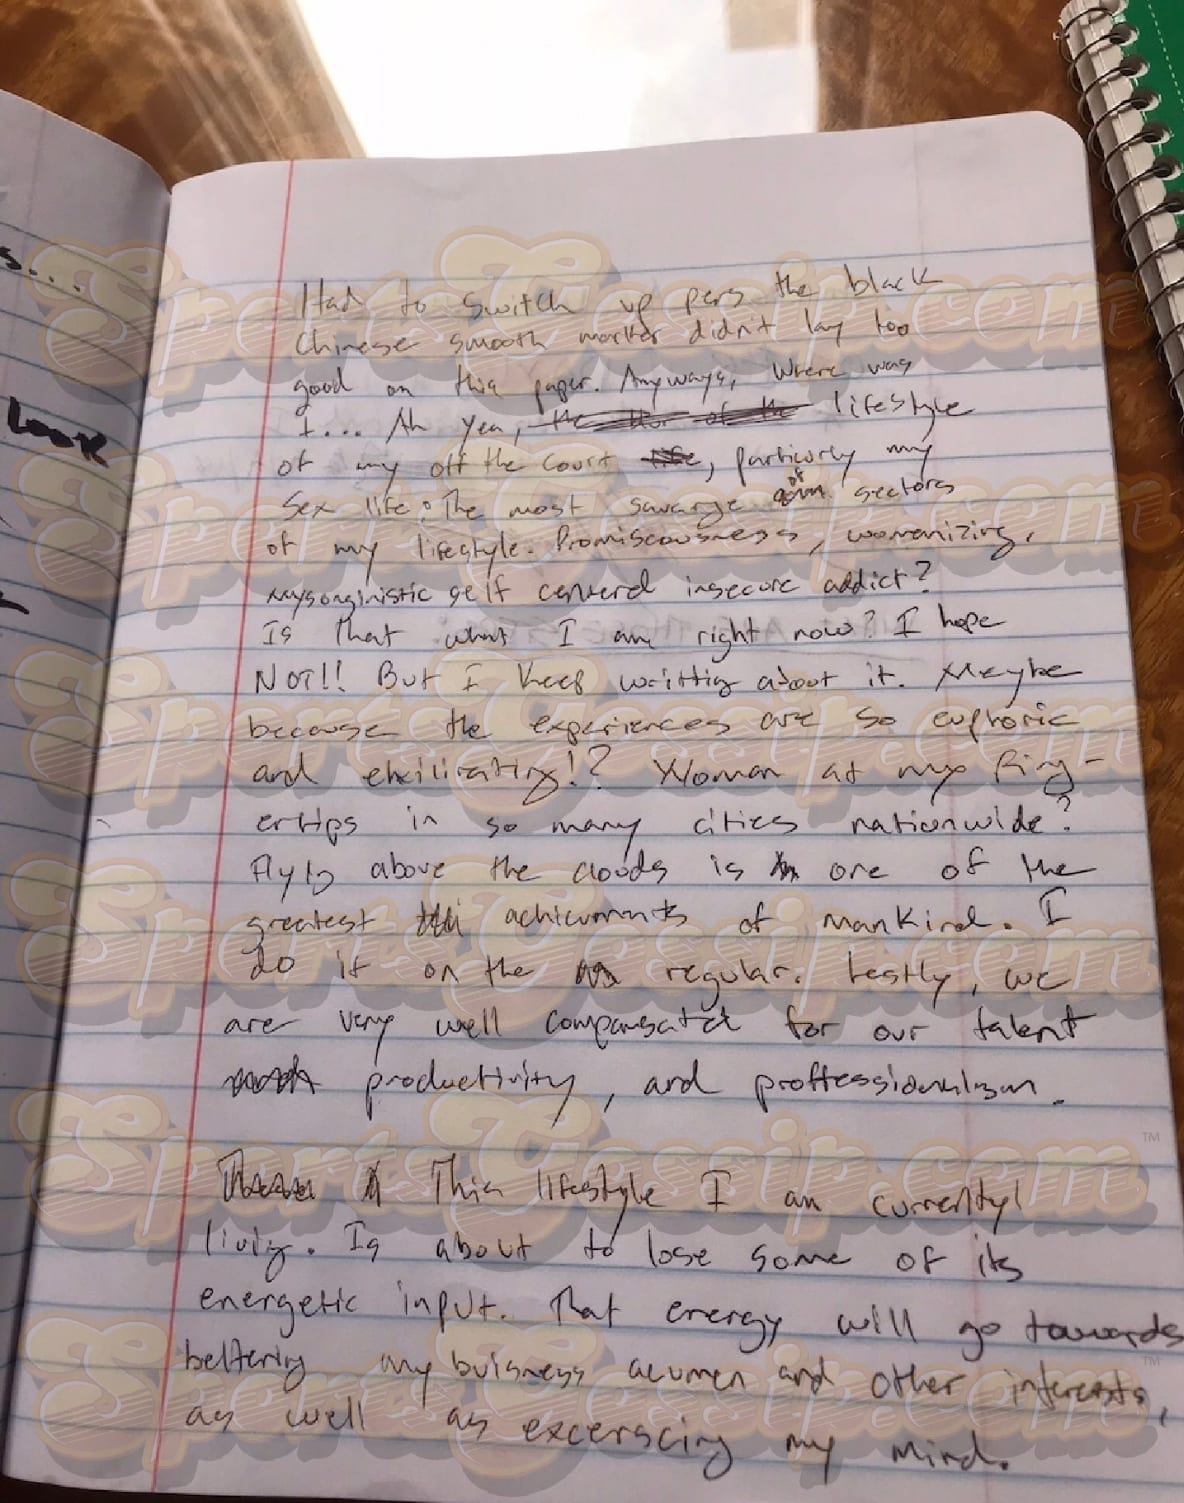 Had to switch up pens the black
Chinese smooth marker didn't lay too
good on this paper. Anyways, Where was
I... Ah yea, lifestyle
of my off the court, particurly my
Sex life: The most savarge of sectors
of my lifestyle. Promiscousness, womanizing,
mysonginistic self centerd insecure addict?
Is that what I am right now? I hope
NOT!! But I keep writtig about it. Maybe
because the experiences are so euphoric
and exilirating!? Woman at my fing-
ertips in so many cities nationwide?
Flyig above the clouds is one of the
greatest achicuments of mankind. I
do it on the regular. Lastly, we
are very well compensated for our talent
productivity, and proffessionalism.
This lifestyle I am currently
livig. Is about to lose some of its
energetic input. That energy will go towards
beltering my buisness acumen and other interests,
as well as excerscing my mind.
s...
look
SportsGossip.com
TM
TM